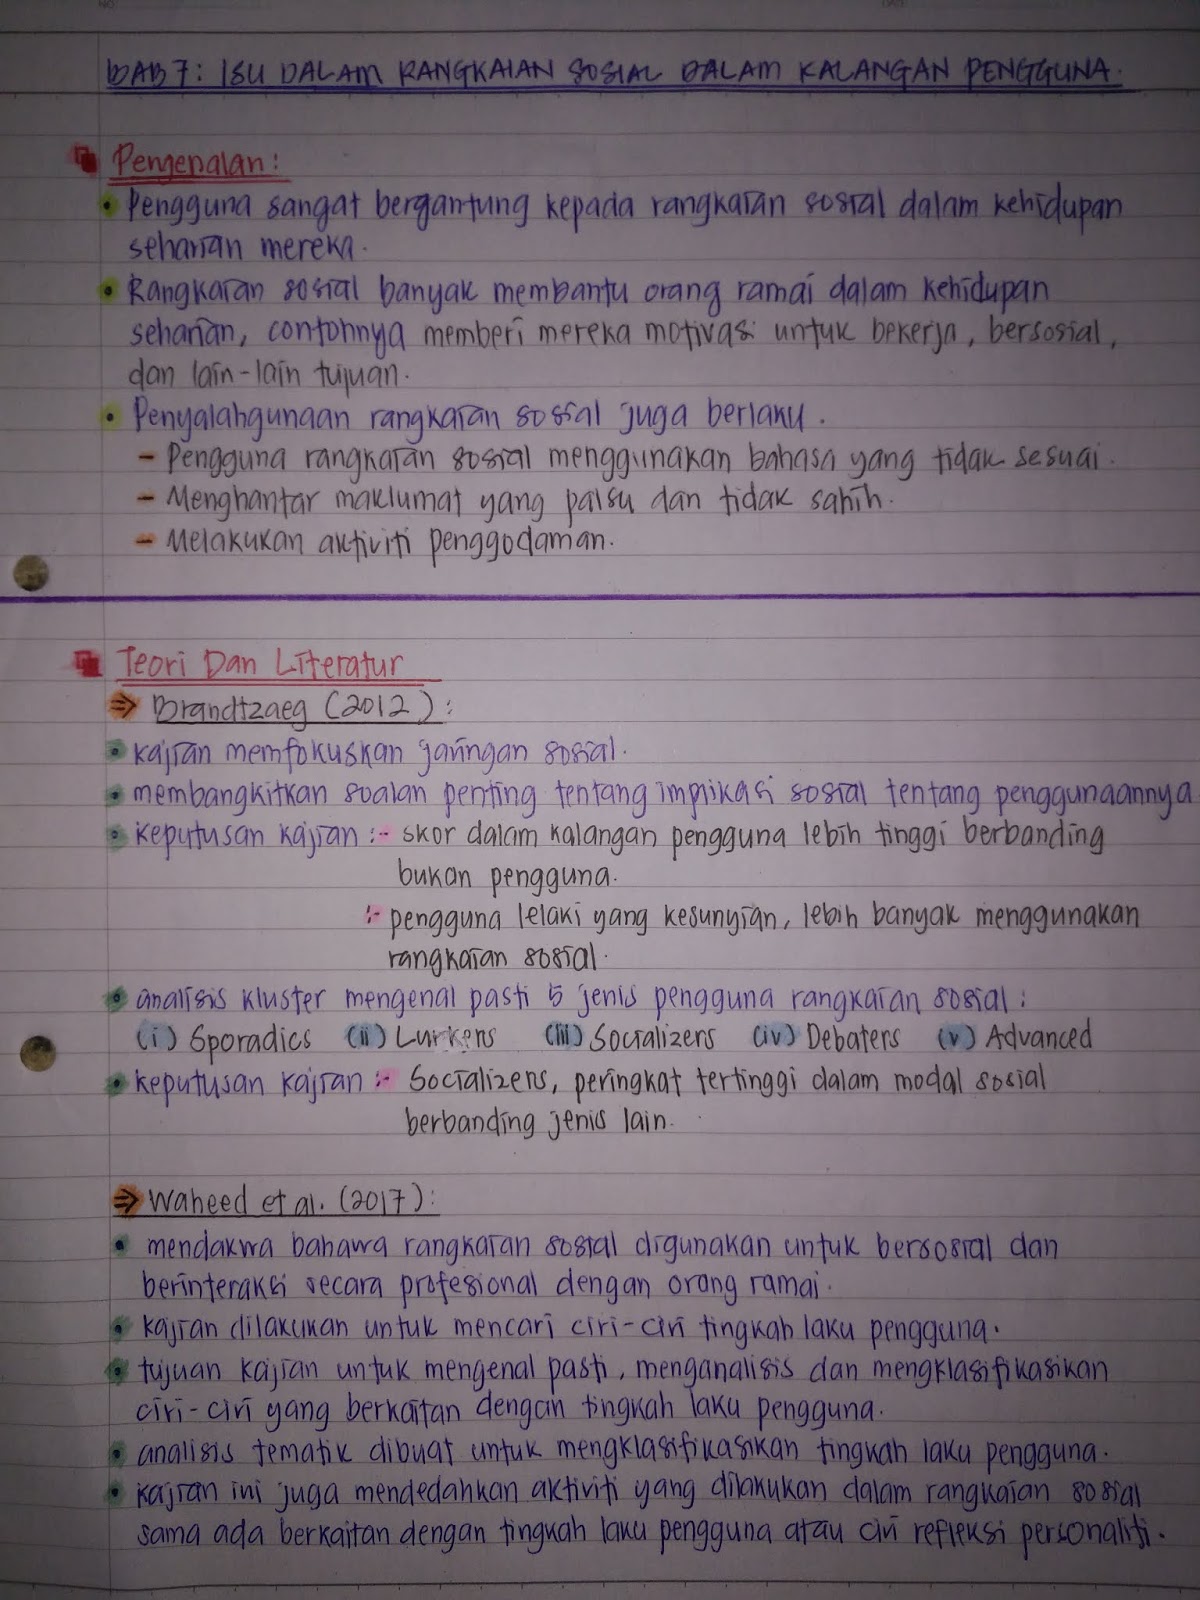 BAB 7: ISU DALAM RANGKAIAN SOSIAL DALAM KALANGAN PENGGUNA.
Pengenalan:
• Pengguna sangat bergantung kepada rangkaian sosial dalam kehidupan
seharian mereka.
• Rangkaian sosial banyak membantu orang ramai dalam kehidupan
seharian, contohnya memberi mereka motivasi untuk bekerja, bersosial,
dan lain-lain tujuan.
• Penyalahgunaan rangkaian sosial juga berlaku.
- Pengguna rangkaian sosial menggunakan bahasa yang tidak sesuai.
- Menghantar maklumat yang palsu dan tidak sahih.
- Melakukan aktiviti penggodaman.
Teori Dan Literatur
⇒ Brandtzaeg (2012):
• kajian memfokuskan jaringan sosial.
• membangkitkan soalan penting tentang implikasi sosial tentang penggunaannya
• keputusan kajian :- skor dalam kalangan pengguna lebih tinggi berbanding
bukan pengguna.
:- pengguna lelaki yang kesunyian, lebih banyak menggunakan
rangkaian sosial.
• analisis kluster mengenal pasti 5 jenis pengguna rangkaian sosial:
(i) Sporadics (ii) Lurkers (iii) Socializers (iv) Debaters (v) Advanced
• keputusan kajian :- Socializers, peringkat tertinggi dalam modal sosial
berbanding jenis lain.
⇒ Waheed et al. (2017):
• mendakwa bahawa rangkaian sosial digunakan untuk bersosial dan
berinteraksi secara profesional dengan orang ramai.
• kajian dilakukan untuk mencari ciri-ciri tingkah laku pengguna.
• tujuan kajian untuk mengenal pasti, menganalisis dan mengklasifikasikan
ciri-ciri yang berkaitan dengan tingkah laku pengguna.
• analisis tematik dibuat untuk mengklasifikasikan tingkah laku pengguna.
• kajian ini juga mendedahkan aktiviti yang dilakukan dalam rangkaian sosial
sama ada berkaitan dengan tingkah laku pengguna atau ciri refleksi personaliti.